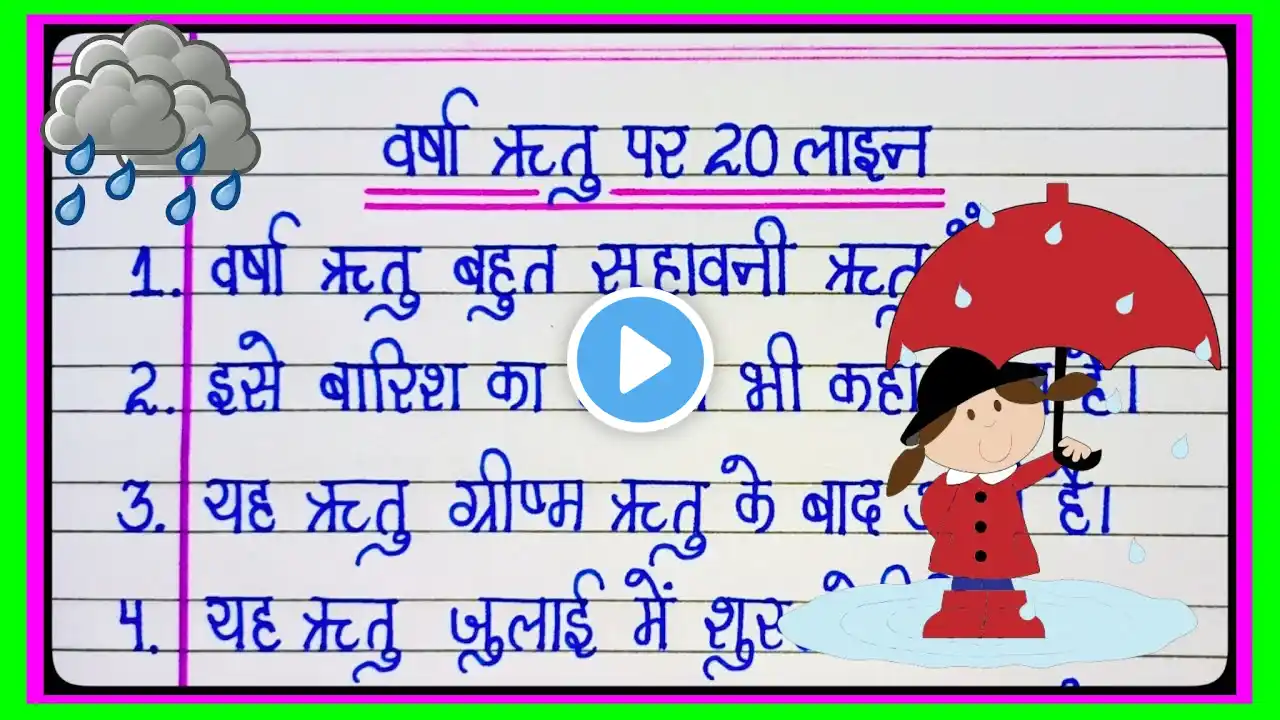 वर्षा ऋतु पर 20 लाइन
1. वर्षा ऋतु बहुत सुहावनी ऋतु
2. इसे बारिश का भी कहा है।
3. यह ऋतु ग्रीष्म ऋतु के बाद है।
4. यह ऋतु जुलाई में